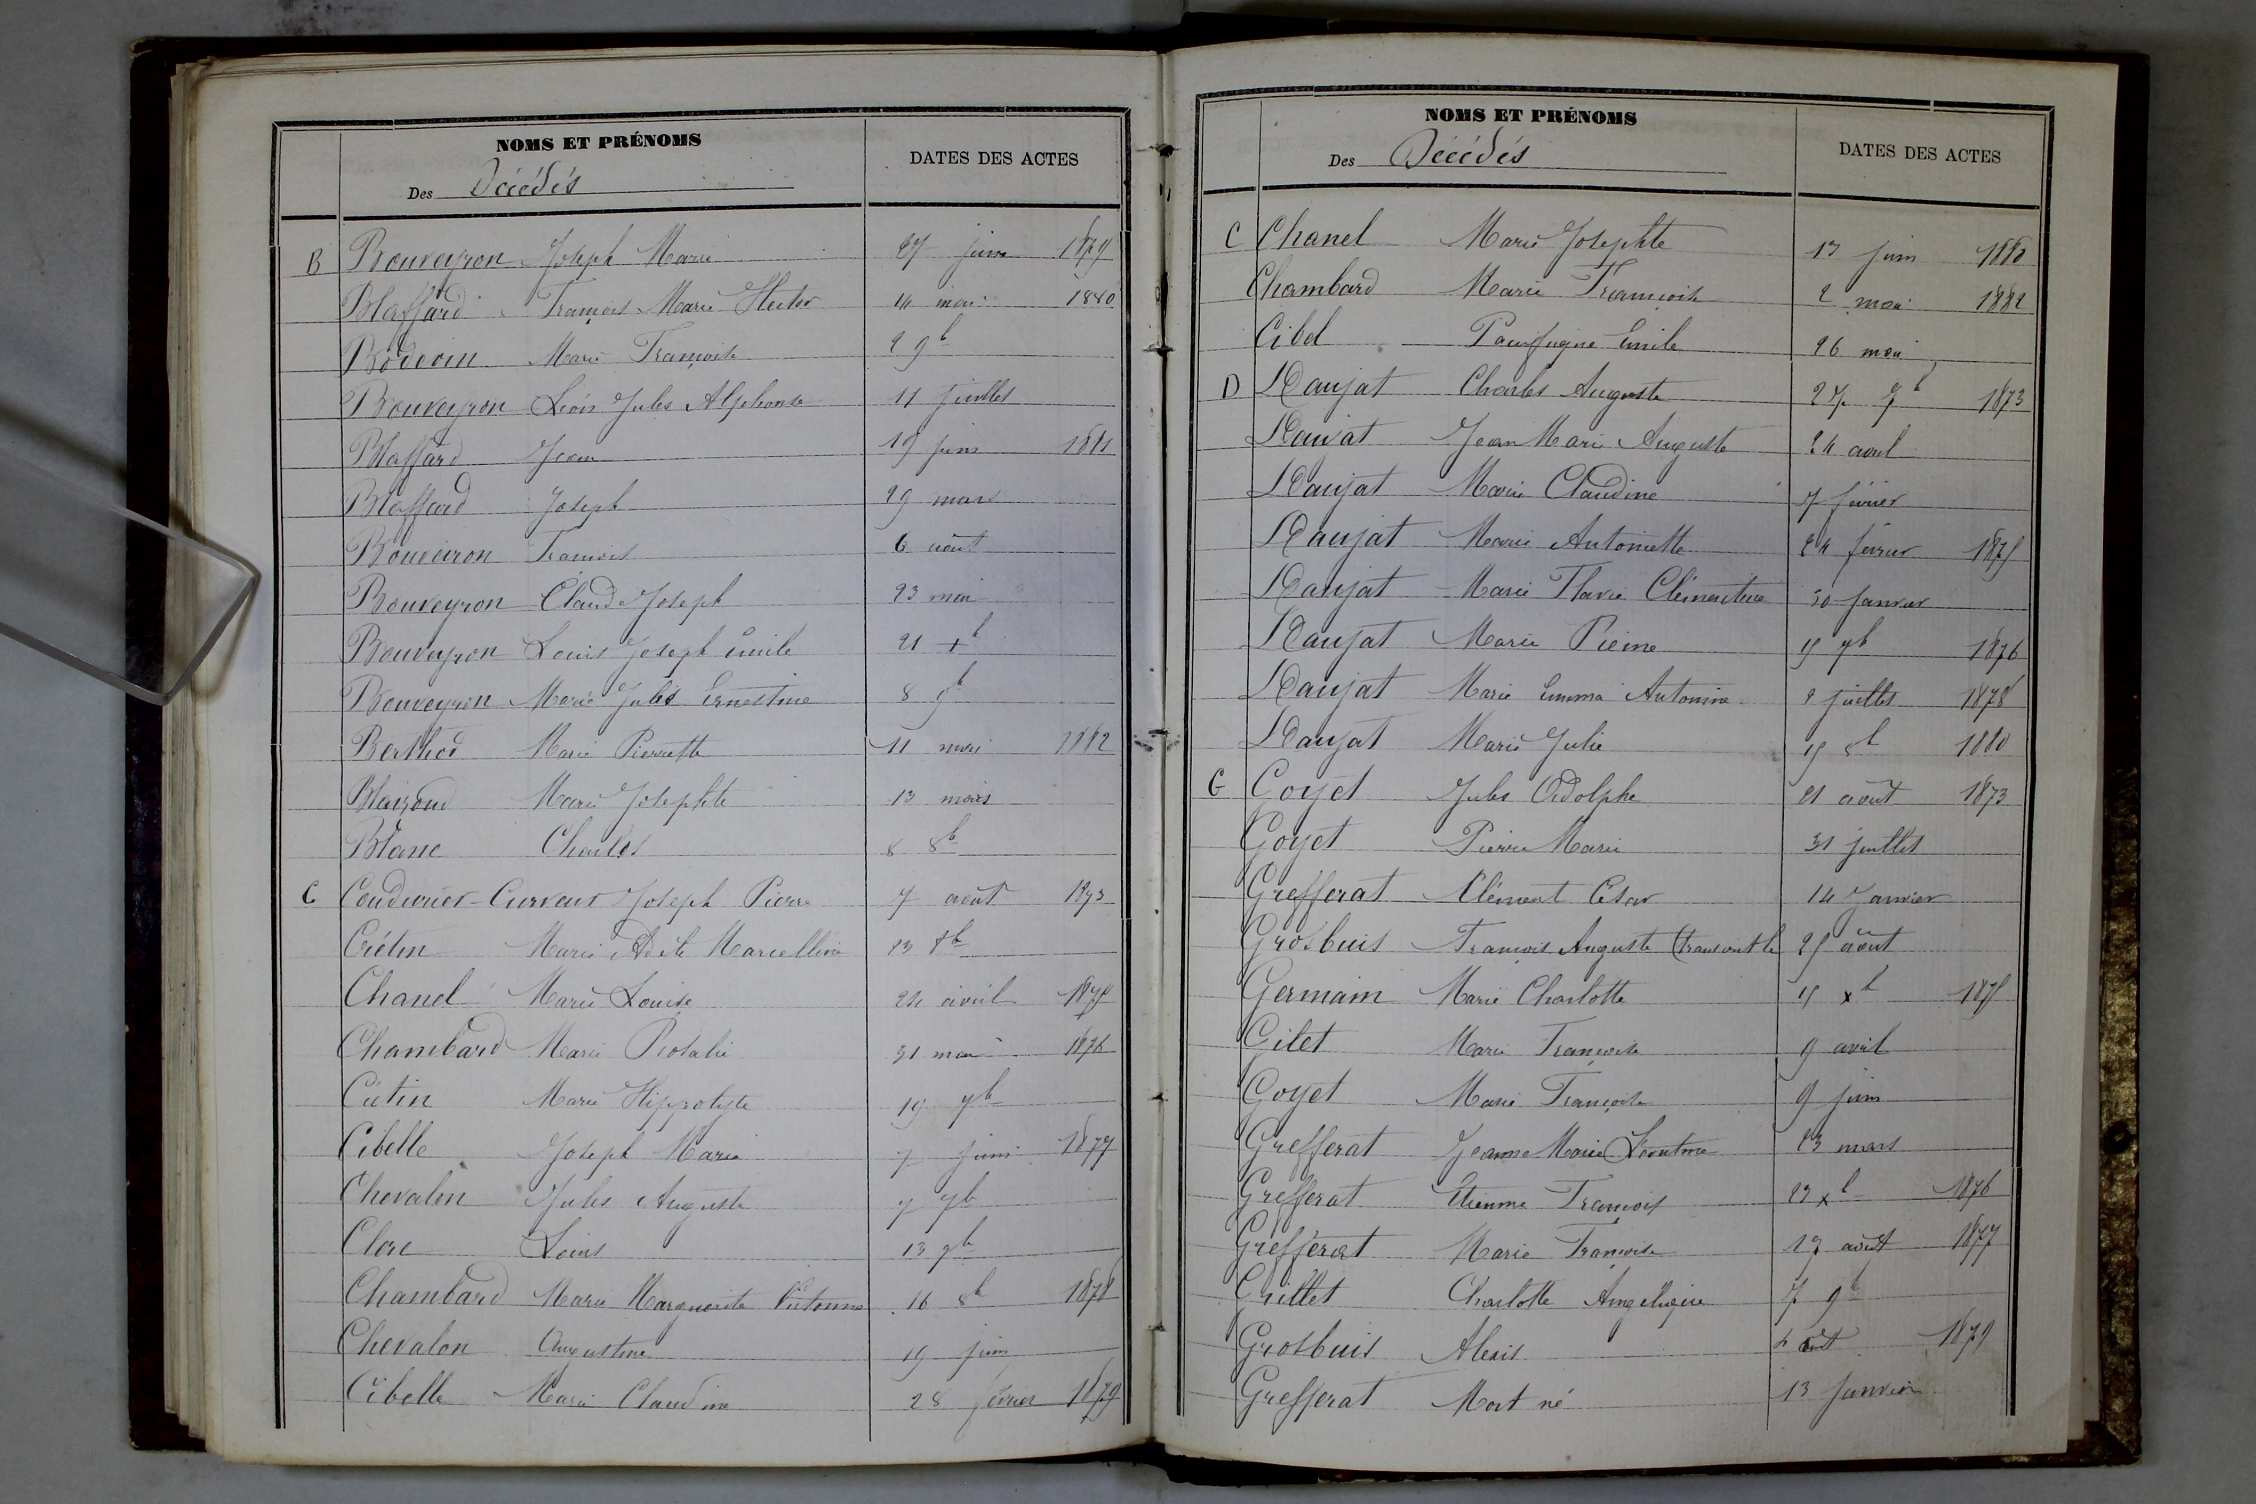 NOMS ET PRÉNOMS
Des Décédés
DATES DES ACTES
B Bouveyron Joseph Marie 27 juin 1879
Blaffard François Marie Hector 14 mai 1880
Bodvoin Marie Françoise 2 9b
Bouveyron Léon Jules Alphonse 11 juillet
Blaffard Jean 19 juin 1881
Blaffard Joseph 29 mars
Bouveiron François 6 août
Bouveyron Claude Joseph 23 mai
Bouveyron Louis Joseph Emile 21 +b
Bouveyron Marie Julie Ernestine 8 9b
Berthod Marie Pierrette 11 mai 1882
Marie Josephte 13 mars
Blanc Charles 8 8b
C Coudurier-Curveur Joseph Pierre 7 août 1873
Crétin Marie Adèle Marcelline 13 8b
Chanel Marie Louise 24 avril
Chambard Marie Rosalie 31 mai 1876
Crétin Marie Hippolyte 19 7b
Cibelle Joseph Marie 7 juin 1877
Chevalon Jules Auguste 7 7b
Clerc Louis 13 9b
Chambard Marie Marguerite Victorine 16 8b 1878
Chevalon Augustine 19 juin
Cibelle Marie Claudine 28 février 1879
NOMS ET PRÉNOMS
Des Décédés
DATES DES ACTES
C Chanel Marie Josephte 13 juin 1880
Chambard Marie Françoise 2 mai 1882
Cibel Emile 26 mai
D Daujat Charles Auguste 27 7b 1873
Daujat Jean Marie Auguste 24 avril
Daujat Marie Claudine 7 février
Daujat Marie Antoinette 24 février 1875
Daujat Marie Flavie Clémentine 30 janvier
Daujat Marie Pierrine 15 7b 1876
Daujat Marie Emma Antonine 2 juillet 1878
Daujat Marie Julie 15 8b 1880
G Goyet Jules Adolphe 21 août 1873
Goyet Pierre Marie 31 juillet
Grefferat Clément César 14 janvier
Grosbuis François Auguste 25 août
Germain Marie Charlotte 15 xb 1875
Gilet Marie Françoise 9 avril
Goyet Marie Françoise 9 juin
Grefferat Jeanne Marie Léontine 23 mars
Grefferat Etienne François 23 xb 1876
Grefferat Marie Françoise 17 août 1877
Grillet Charlotte Angélique 7 9b
Grosbuis Alexis août 1879
Grefferat Mort né 13 janvier